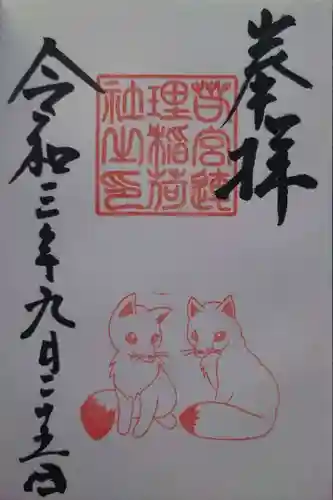 奉拝
苗宮道
理稲荷
社之印
令和三年九月二十五日